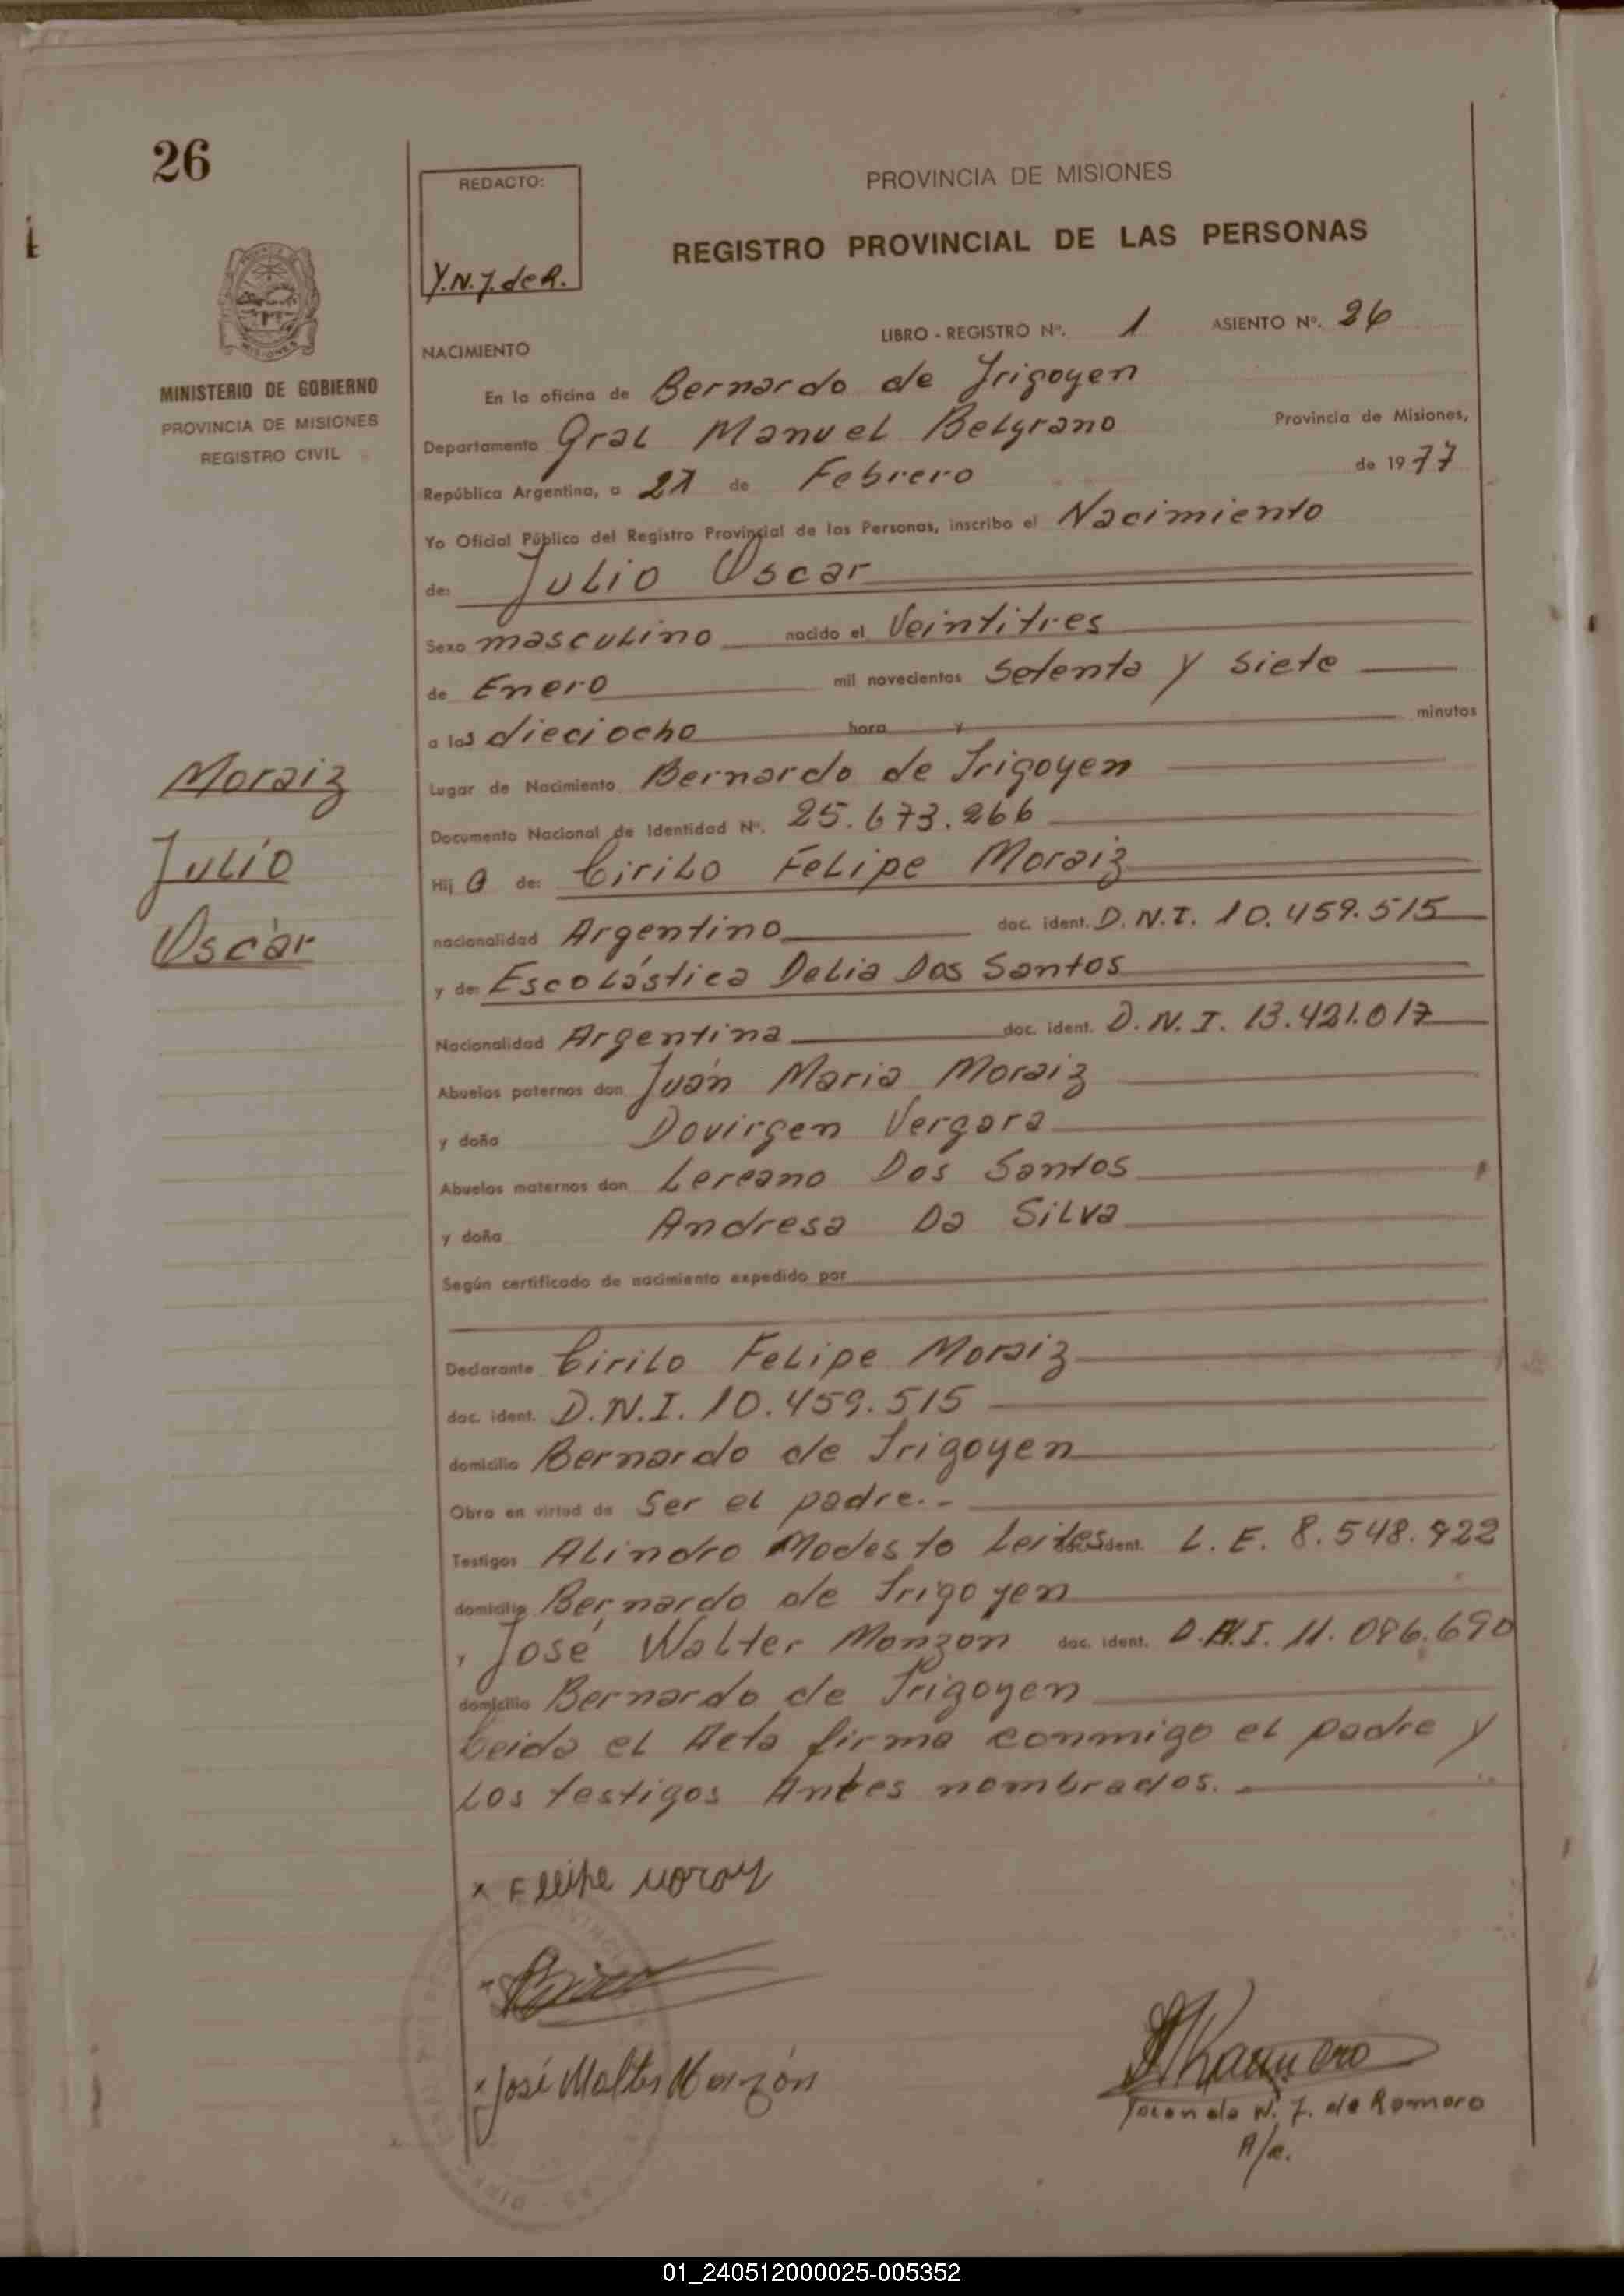 26
REDACTO:
Y.N.J. de R.
PROVINCIA DE MISIONES
REGISTRO PROVINCIAL DE LAS PERSONAS
MINISTERIO DE GOBIERNO
PROVINCIA DE MISIONES
REGISTRO CIVIL
LIBRO - REGISTRO Nº. 1 ASIENTO Nº. 26
NACIMIENTO
En la oficina de Bernardo de Irigoyen
Departamento Gral Manuel Belgrano Provincia de Misiones,
República Argentina, a 21 de Febrero de 1977
Yo Oficial Público del Registro Provincial de las Personas, inscribo el Nacimiento
de: Julio Oscar
Sexo masculino nacido el Veintitres
de Enero mil novecientos Setenta y Siete
a las dieciocho hora y minutos
Lugar de Nacimiento Bernardo de Irigoyen
Documento Nacional de Identidad Nº. 25.673.266
Hij o de: Cirilo Felipe Moraiz
nacionalidad Argentino doc. ident. D.N.I. 10.459.515
y de: Escolástica Delia Dos Santos
Nacionalidad Argentina doc. ident. D.N.I. 13.421.017
Abuelos paternos don Juán Maria Moraiz
y doña Dovirgen Vergara
Abuelos maternos don Lereano Dos Santos
y doña Andresa Da Silva
Según certificado de nacimiento expedido por
Declarante Cirilo Felipe Moraiz
doc. ident. D.N.I. 10.459.515
domicilio Bernardo de Irigoyen
Obra en virtud de Ser el padre.-
Testigos Alindro Modesto Leites ident. L.E. 8.548.922
domicilio Bernardo de Irigoyen
y José Walter Monzon doc. ident. D.N.I. 11.086.690
domicilio Bernardo de Irigoyen
Leida el Acta firma conmigo el padre y
los testigos Antes nombrados.-
Moraiz
Julio
Oscar
x Felipe Moray
x José Walter Monzón
N. J. de Romero
A/c.
01_240512000025-005352